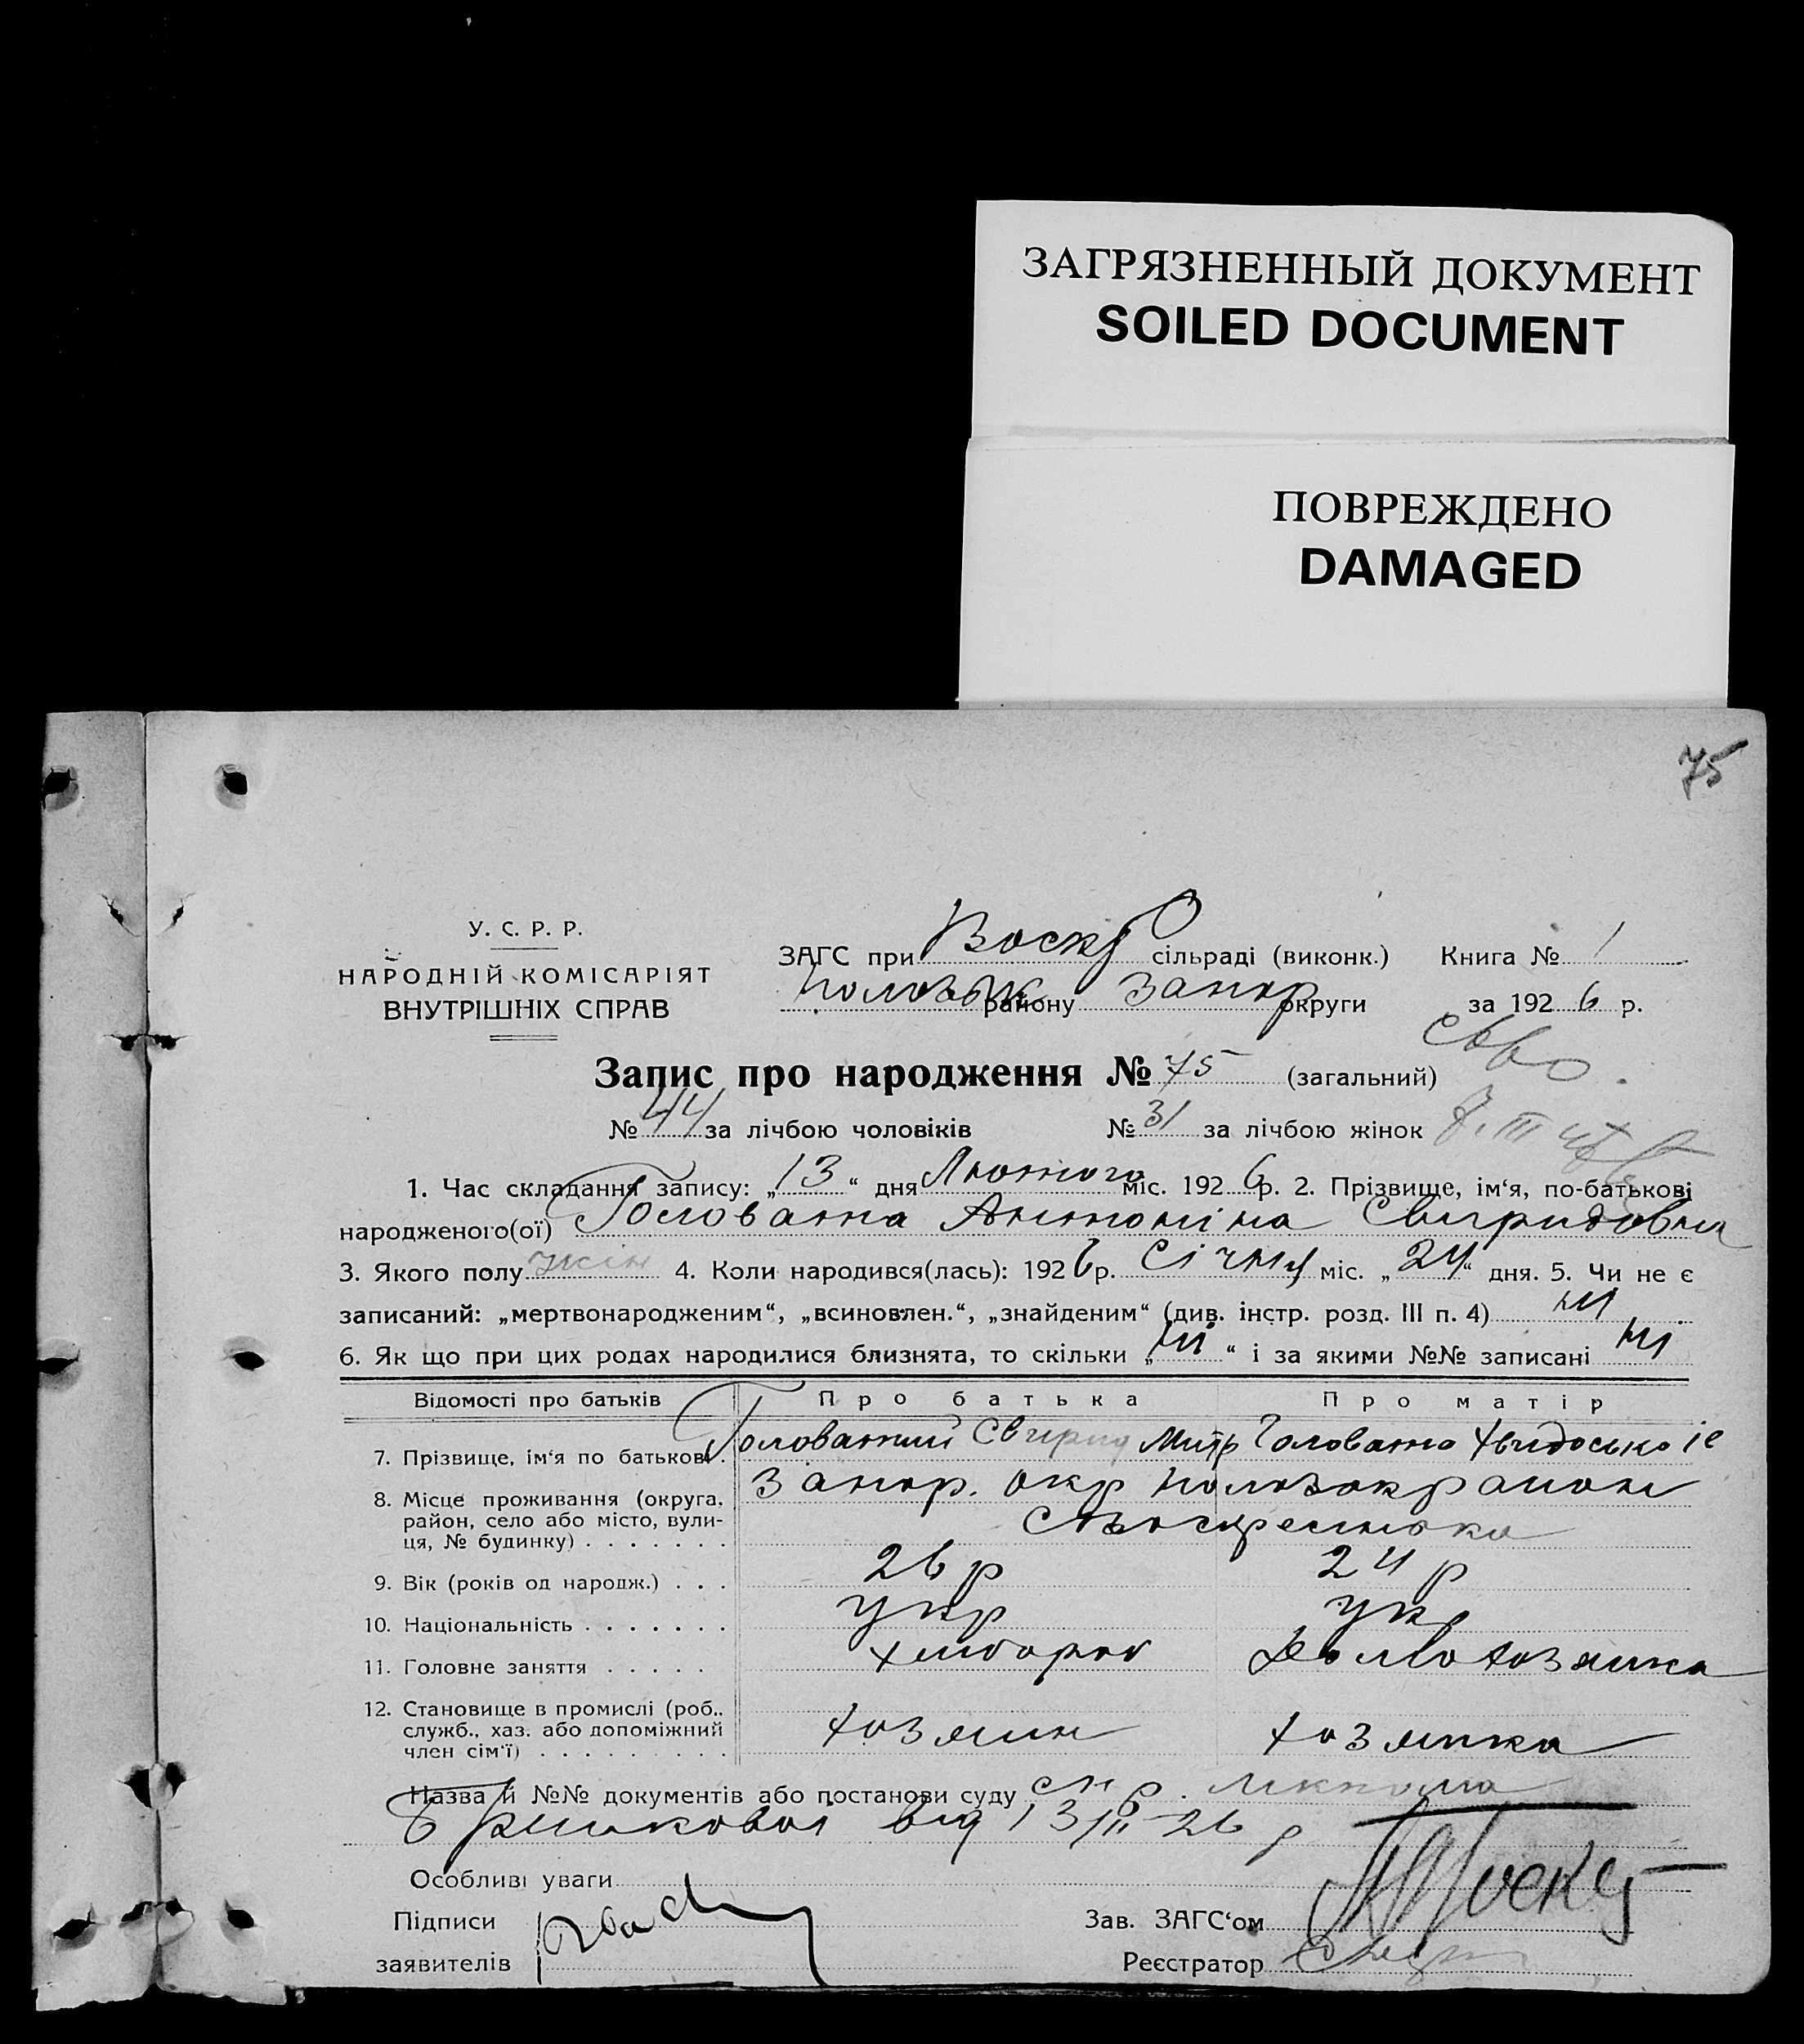 ЗАГРЯЗНЕННЫЙ ДОКУМЕНТ
SOILED DOCUMENT
ПОВРЕЖДЕНО
DAMAGED
75
У. С. Р. Р.
НАРОДНІЙ КОМІСАРІЯТ
ВНУТРІШНІХ СПРАВ
ЗАГС при Воскр сільраді (виконк.) Книга № 1
району Запор округи за 1926 р.
Запис про народження № 75 (загальний)
№ 44 за лічбою чоловіків № 31 за лічбою жінок
1. Час складання запису: „13“ дня Лютого міс. 1926 р. 2. Прізвище, ім‘я, по-батькові
народженого(ої) Головата Антоніна Свиридовна
3. Якого полу жін 4. Коли народився(лась): 1926 р. Січня міс. „24“ дня. 5. Чи не є
записаний: „мертвонародженим“, „всиновлен.“, „знайденим“ (див. інстр. розд. III п. 4) ні
6. Як що при цих родах народилися близнята, то скільки „ні“ і за якими №№ записані ні
Відомості про батьків Про батька Про матір
7. Прізвище, ім‘я по батькові. Головатий Свирид Митр Головата
8. Місце проживання (округа, район, село або місто, вулиця, № будинку) . . . . . . . Запор. окр район
9. Вік (років од народж.) . . . 26 р 24 р
10. Національність . . . . . . . укр укр
11. Головне заняття . . . . . хлібороб Домохозяйка
12. Становище в промислі (роб., служб., хаз. або допоміжний член сім‘ї) . . . . . . . . . хозяин хозяйка
Назва й №№ документів або постанови суду
від 13/II-26 р
Особливі уваги
Підписи
заявителів
Зав. ЗАГС‘ом
Реєстратор